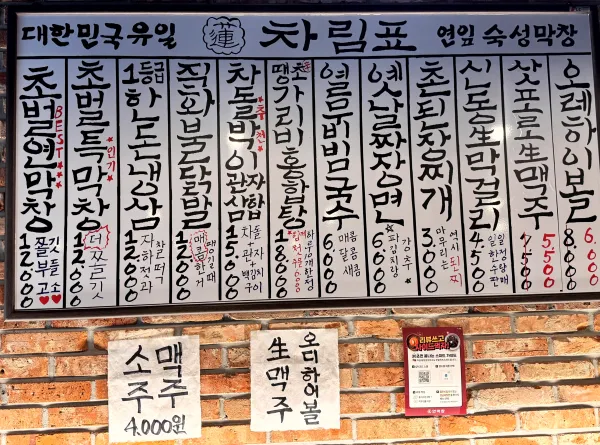 대한민국유일 蓮 차림표 연잎 숙성막창
초벌연막창 BEST
쫄깃
부들
고소
12,000
초벌특막창 인기
더쫄깃
12,000
1등급 한돈냉삼
차돌떡
자하전과
12,000
직화불닭발
땡길때
매콤한거
12,000
차돌박이관자삼합 추천
차돌+관자+김치
백김치구이
15,000
가리비홍합탕
18,000
열무비빔국수
매콤
달콤
새콤
6,000
옛날짜장면
강추
파김치랑
6,000
촌된장찌개
역시 된찌
마무리는
3,000
신동生막걸리
일정량매
일한수판
4,500
삿포로生맥주
5,500
7,500
오레하이볼
6,000
8,000
맥주
소주
4,000원
오디하이볼
生맥주
리뷰쓰고